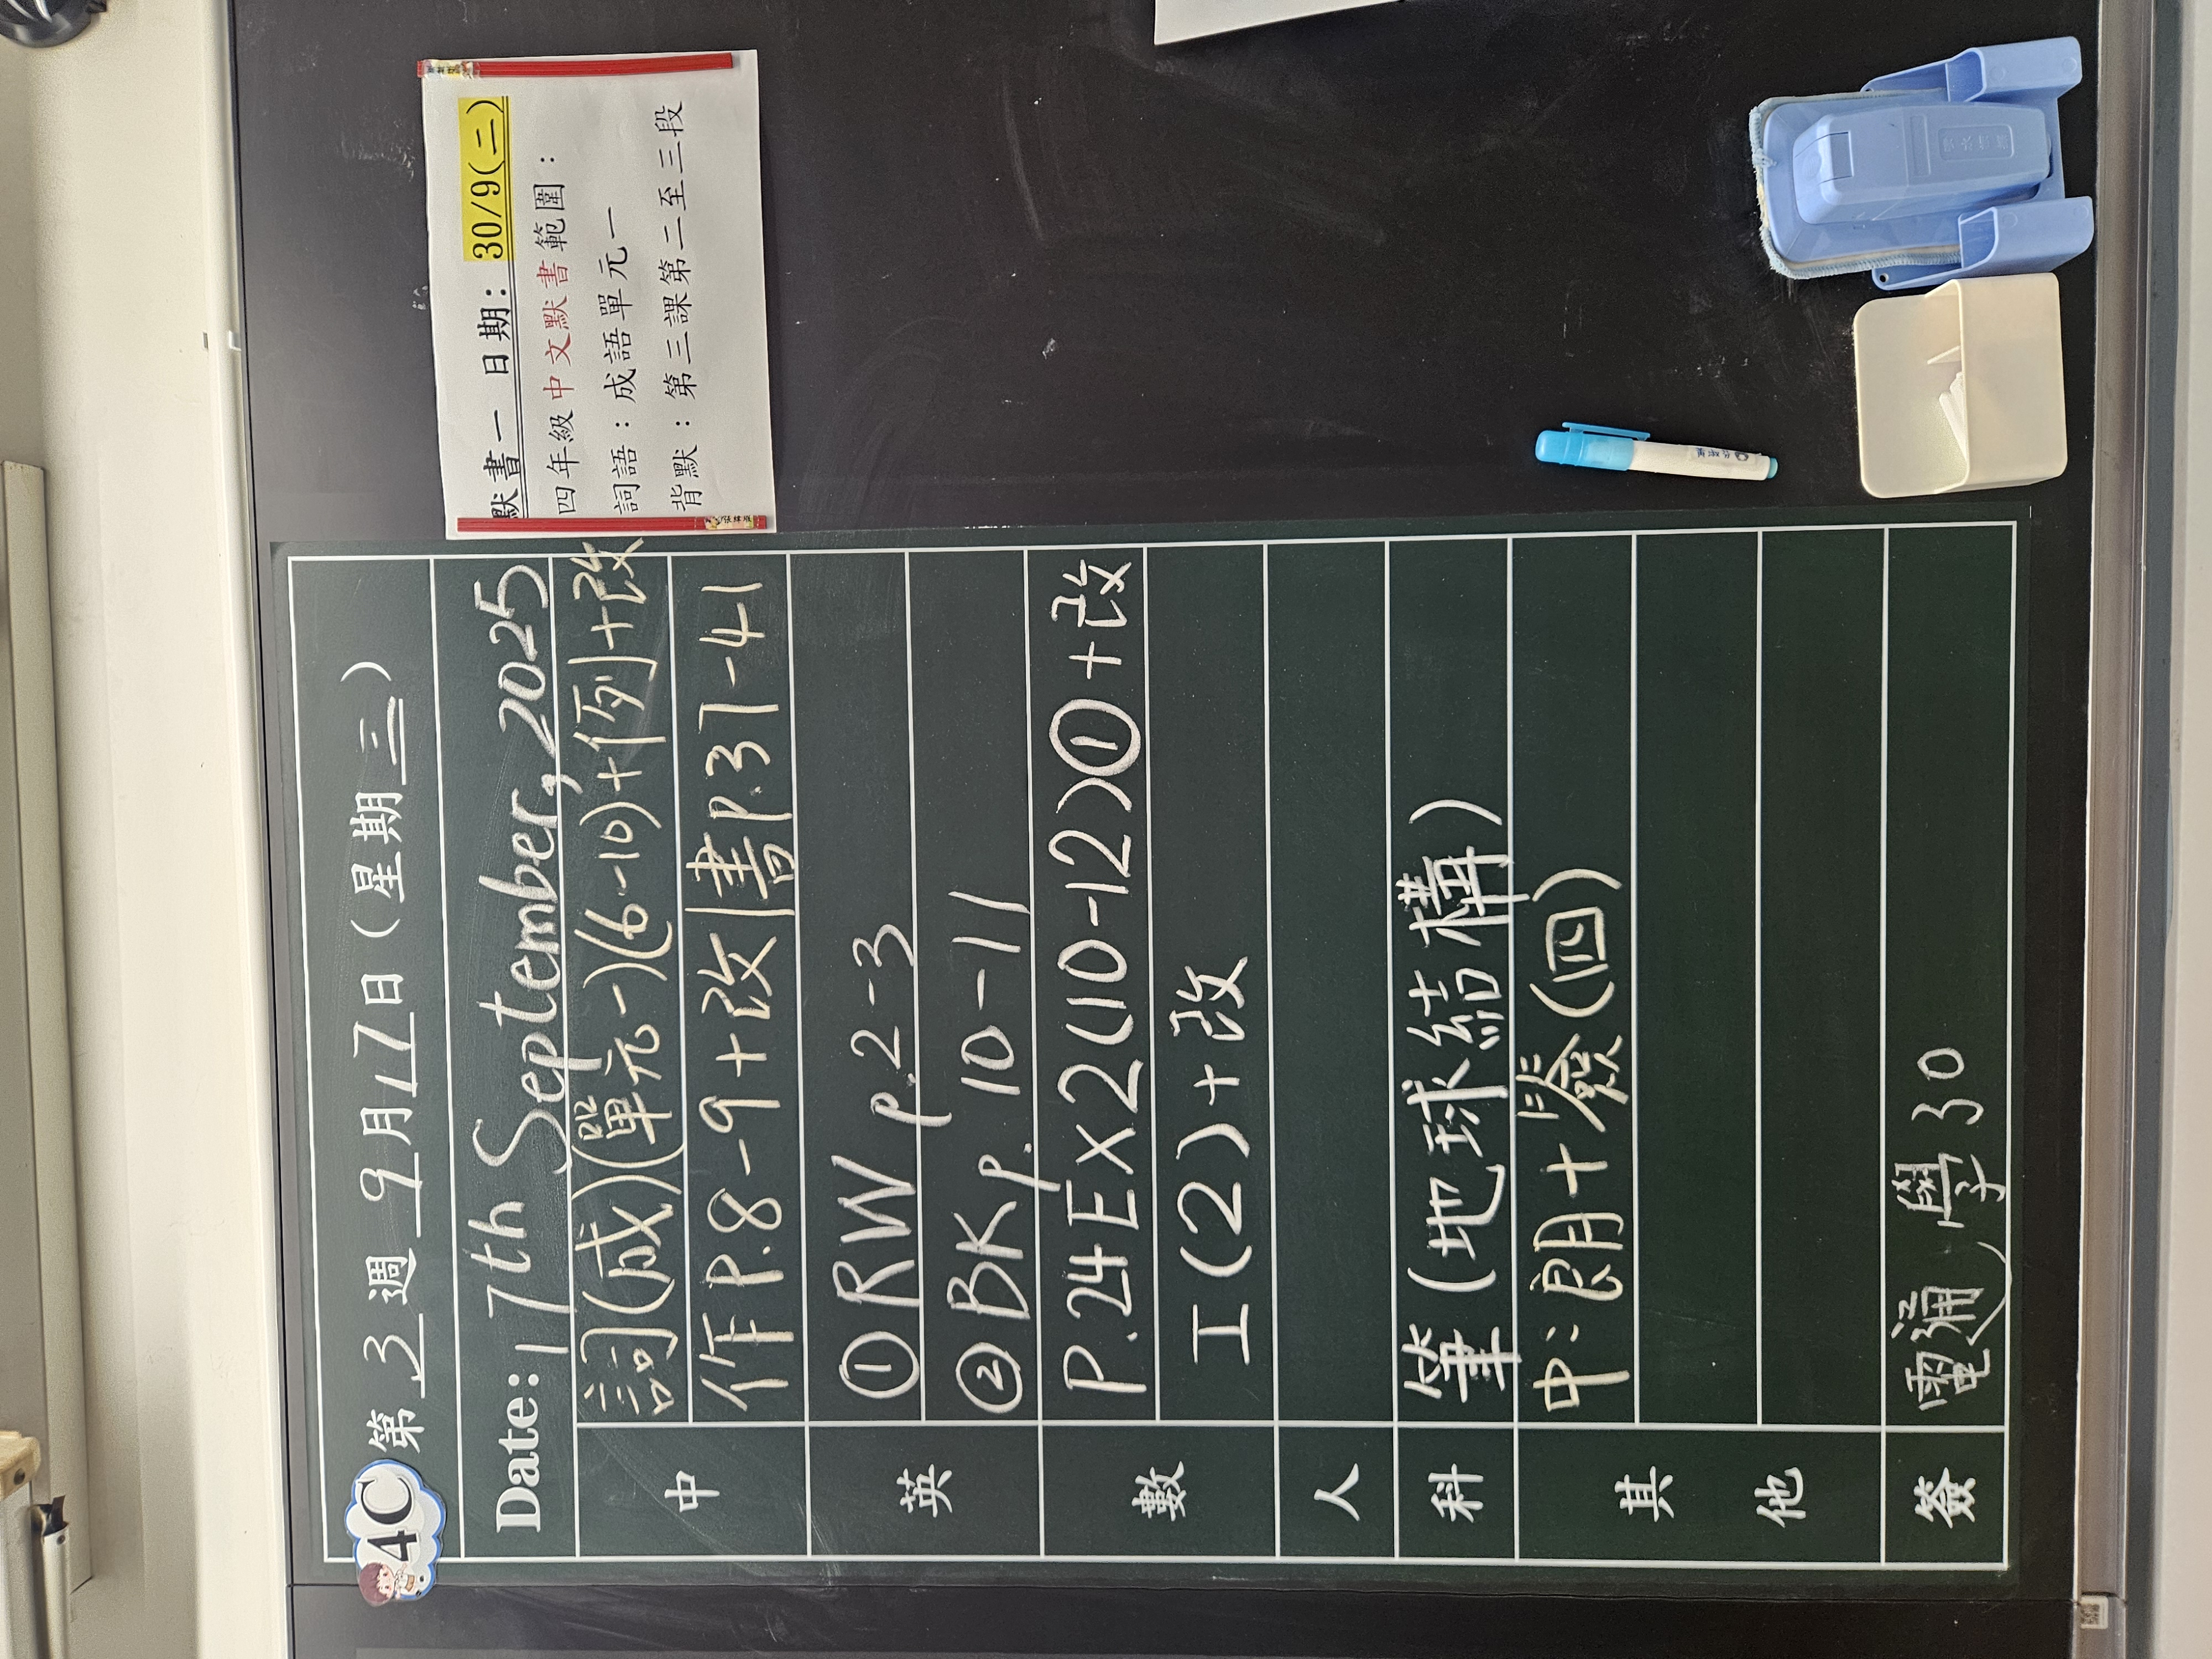 4C 第 3 週 9 月 17 日 ( 星期 三 )
Date: 17th September, 2025
中
詞(成)(單元一)(6-10)+例+改
作 P.8-9+改|書p.37-41
英
① RW p.2-3
② BK p. 10-11
數
P.24 EX2(10-12)①+改
工(2)+改
人
科
筆(地球結構)
其他
中:朗+簽(四)
簽
電通, 學30
默書一 日期: 30/9(二)
四年級中文默書範圍:
詞語:成語單元一
背默:第三課第二至三段